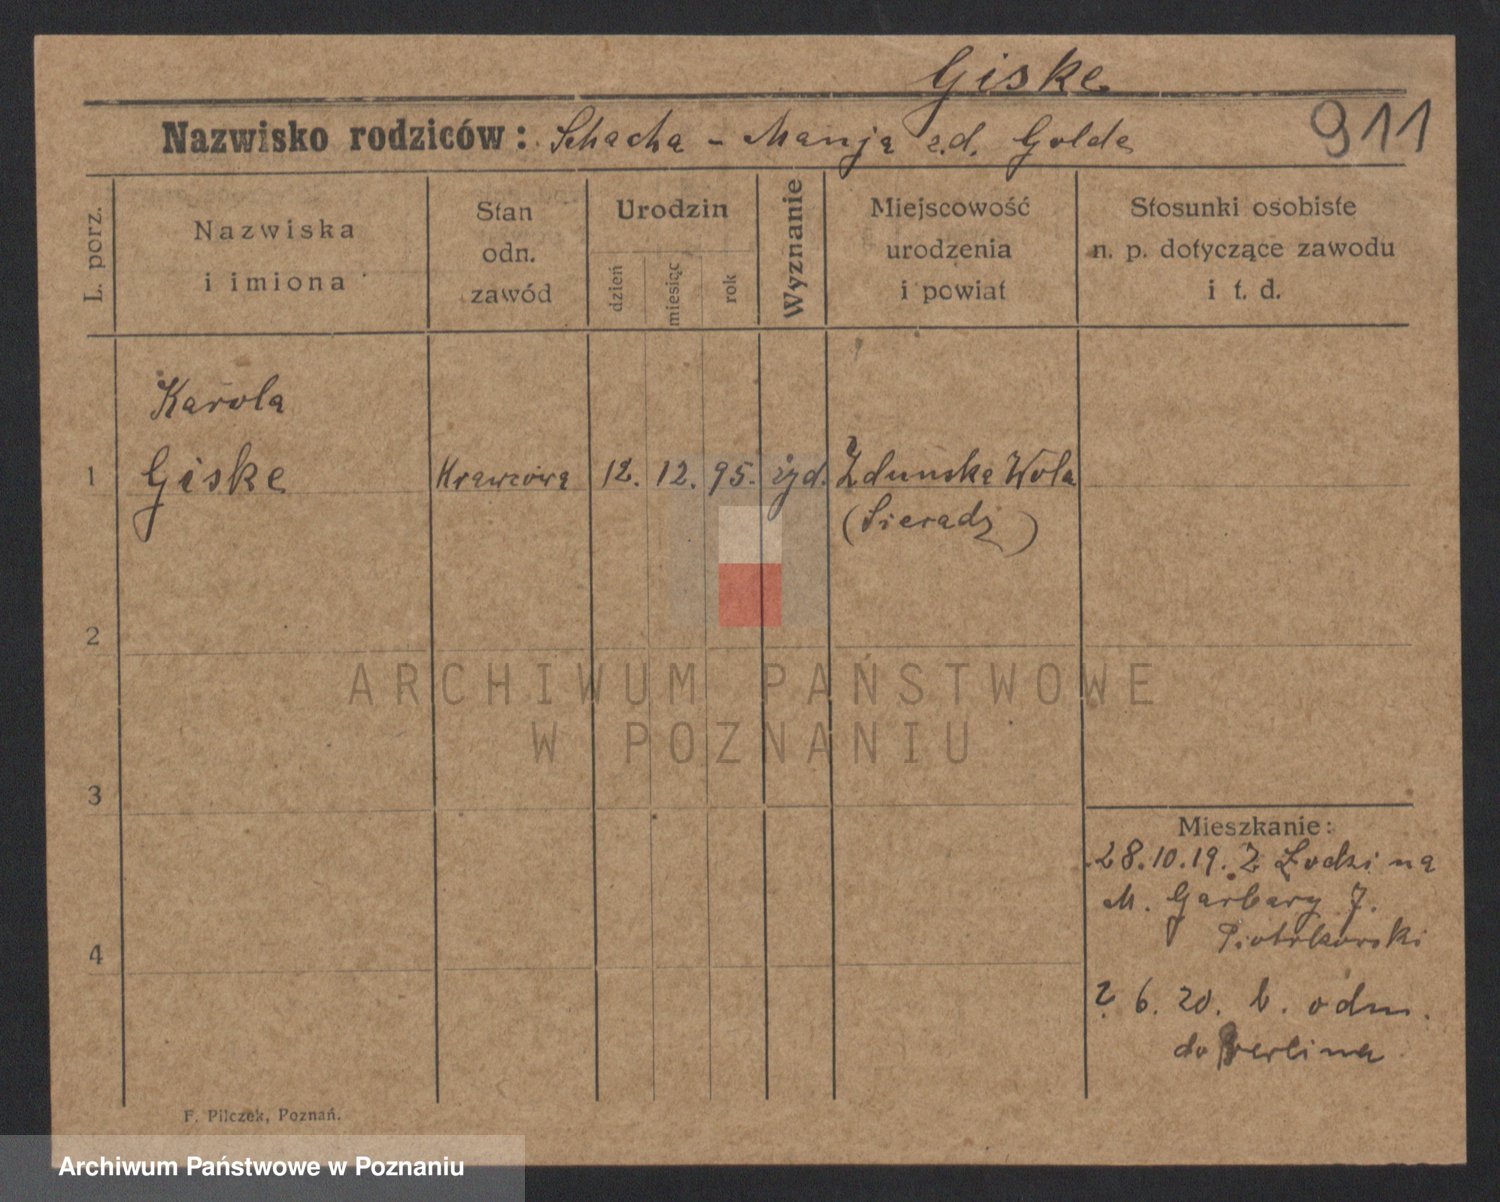 Giske
Nazwisko rodziców: Schacha - Manja z.d. Golde
911
L. porz.
Nazwiska
i imiona
Stan
odn.
zawód
Urodzin
dzień
miesiąc
rok
Wyznanie
Miejscowość
urodzenia
i powiat
Stosunki osobiste
n. p. dotyczące zawodu
i t. d.
Karola
1 Giske Krawcową 12. 12. 95. żyd. Zduńska Wola
(Sieradz)
2
ARCHIWUM PAŃSTWOWE
W POZNANIU
3
Mieszkanie:
28.10.19. Z Łodzi na
M. Garbary 7.
Piotrkowski
4
2. 6. 20. b. odm.
do Berlina
F. Pilczek, Poznań.
Archiwum Państwowe w Poznaniu